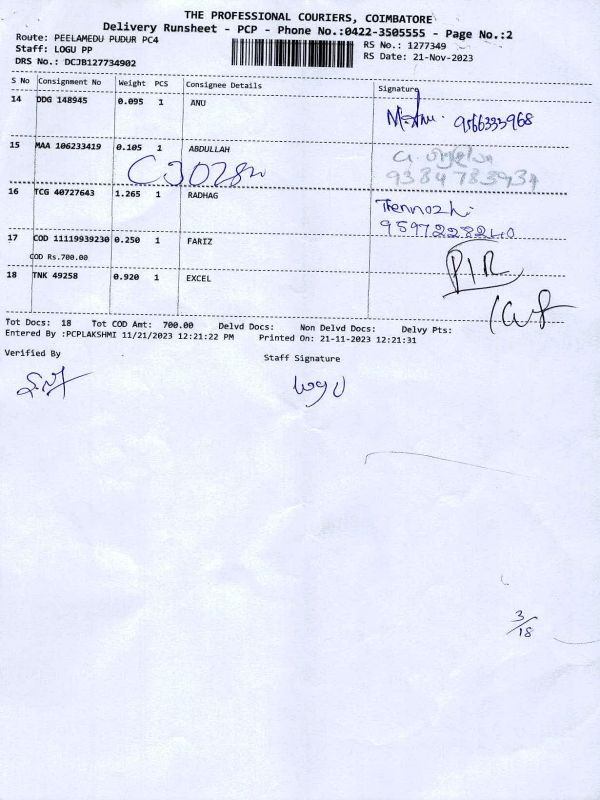 THE PROFESSIONAL COURIERS, COIMBATORE
Delivery Runsheet - PCP - Phone No.:0422-3505555 - Page No.:2
Route: PEELAMEDU PUDUR PC4
RS No.: 1277349
Staff: LOGU PP
RS Date: 21-Nov-2023
DRS No.: DCJB127734902
S No Consignment No Weight PCS Consignee Details Signature
14 DDG 148945 0.095 1 ANU
9566333968
15 MAA 106233419 0.105 1 ABDULLAH
9384783934
16 TCG 40727643 1.265 1 RADHAG
Thennozhi
9597228240
17 COD 11119939230 0.250 1 FARIZ
COD Rs.700.00
18 TNK 49258 0.920 1 EXCEL
Tot Docs: 18 Tot COD Amt: 700.00 Delvd Docs: Non Delvd Docs: Delvy Pts:
Entered By :PCPLAKSHMI 11/21/2023 12:21:22 PM Printed On: 21-11-2023 12:21:31
Verified By
Staff Signature
Logu
3/18